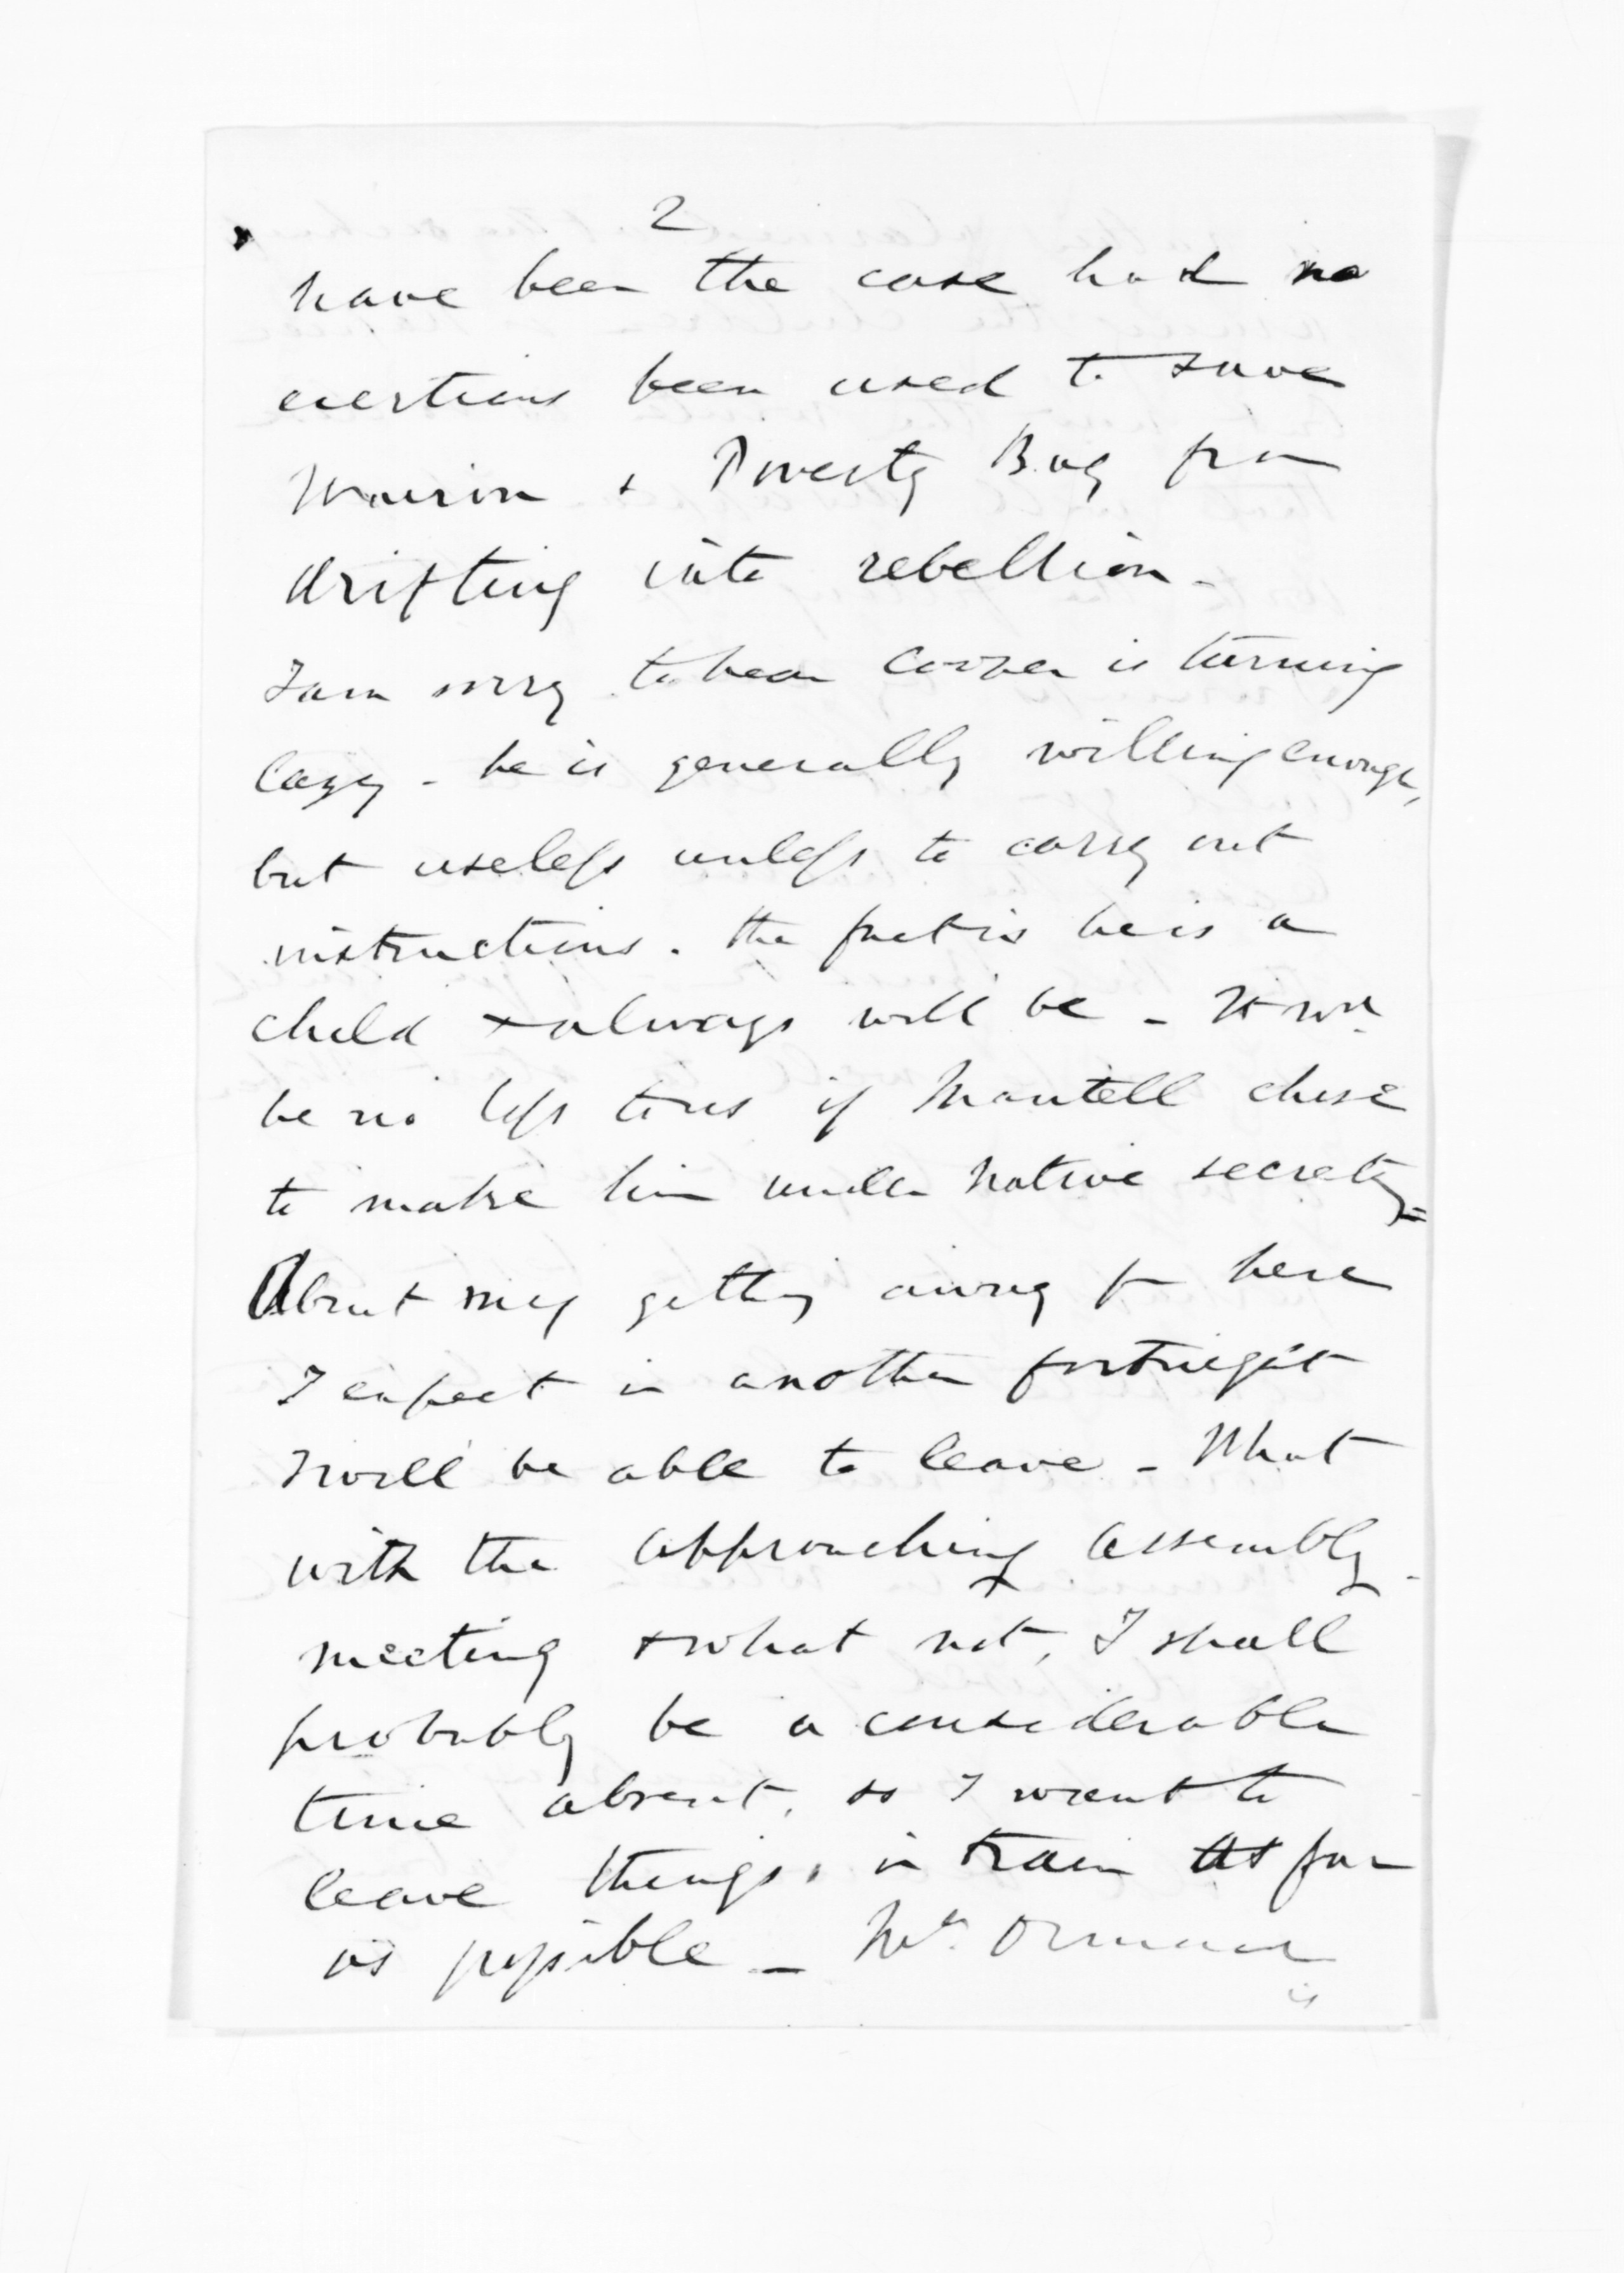 2
have been the case had no
exertions been used to save
Wairoa & Poverty Bay from
drifting into rebellion -
I am sorry to hear Cooper is turning
lazy - he is generally willing enough,
but useless unless to carry out
instructions. the fact is he is a
child & always will be - It wd.
be no less true if Mantell chose
to make him under Native secrety =
About my getting away fm here
I expect in another fortnight
I will be able to leave - What
with the approaching assembly
meeting & what not, I shall
probably be a considerable
time absent, so I want to
leave things, in train as far
as possible - Mr. Ormond
is